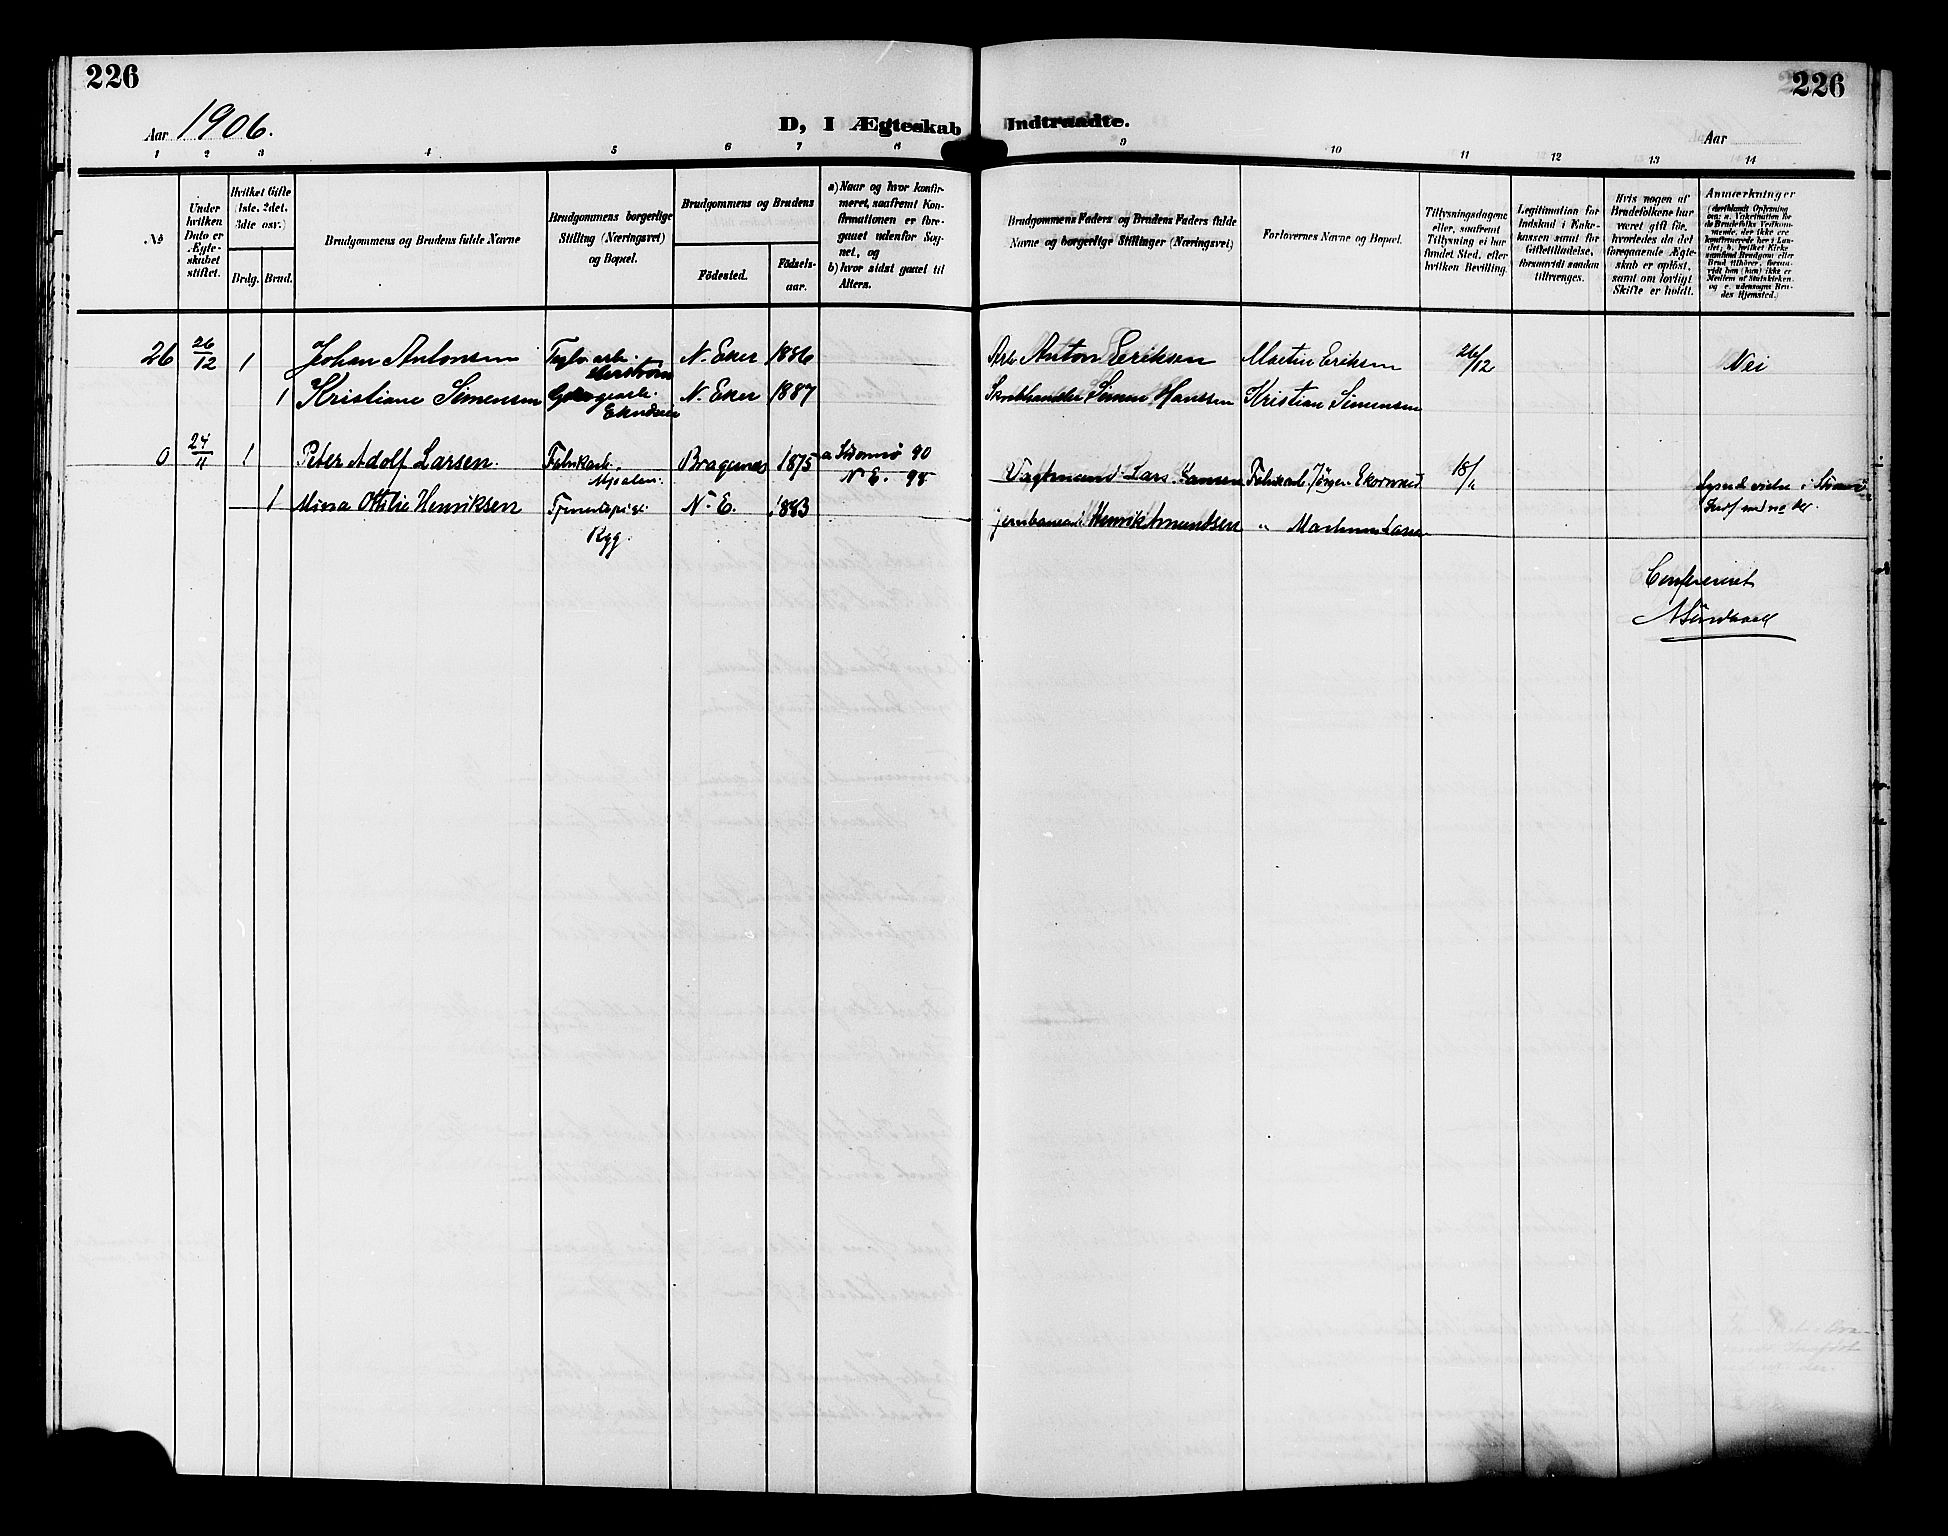 226
226
Aar 1906.
D, I Ægteskab Indtraadte.
Aar
1 2 3 4 5 6 7 8 9 10 11 12 13 14
No
Under hvilken Dato er Ægteskabet stiftet.
Hvilket Gifte (1ste, 2det, 3die osv.)
Brdg. Brud.
Brudgommens og Brudens fulde Navne
Brudgommens borgerlige Stilling (Næringsvei) og Bopæl.
Brudgommens og Brudens
Fødested.
Fødselsaar.
a) Naar og hvor konfirmeret, saafremt Konfirmationen er foregaaet udenfor Sognet, og
b) hvor sidst gaaet til Alters.
Brudgommens Faders og Brudens Faders fulde Navne og borgerlige Stillinger (Næringsvei)
Forlovernes Navne og Bopæl.
Tillysningsdagene eller, saafremt Tillysning ei har fundet Sted, efter hvilken Bevilling.
Legitimation for Indskud i Enkekassen samt for Giftetilladelse, forsaavidt saadan tiltrænges.
Hvis nogen af Brudefolkene har været gift før, hvorledes da det foregaaende Ægteskab er opløst, samt om lovligt Skifte er holdt.
Anmærkninger
26 26/12 1 Johan Antonsen N. Eker 1886 Arb. Anton Eriksen Martin Eriksen 26/12 Nei
1 Kristiane Simensen N. Eker 1887 Simen Hanssen Kristian Simensen
0 24/11 1 Peter Adolf Larsen. Fabrikarb. Bragernes 1875 a Strømsø 90 Lars Fabrikarb. Jørgen 18/11
Mjøalen. N. E. 98
1 Minna Ottilie Henriksen N. E. 1883 Henrik Amundsen " Larsen
Ryg.
Confereret